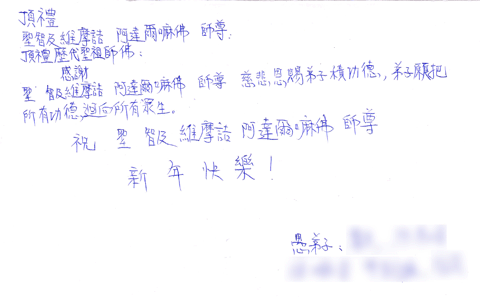 頂禮
聖智及維摩詰 阿達爾嘛佛 師尊.
頂禮歷代聖祖師佛:
感謝
聖 智及維摩詰 阿達爾嘛佛 師尊 慈悲恩賜弟子積功德,弟子願把
所有功德迴向所有眾生。
祝 聖 智及維摩詰 阿達爾嘛佛 師尊
新年快樂!
愚弟子: